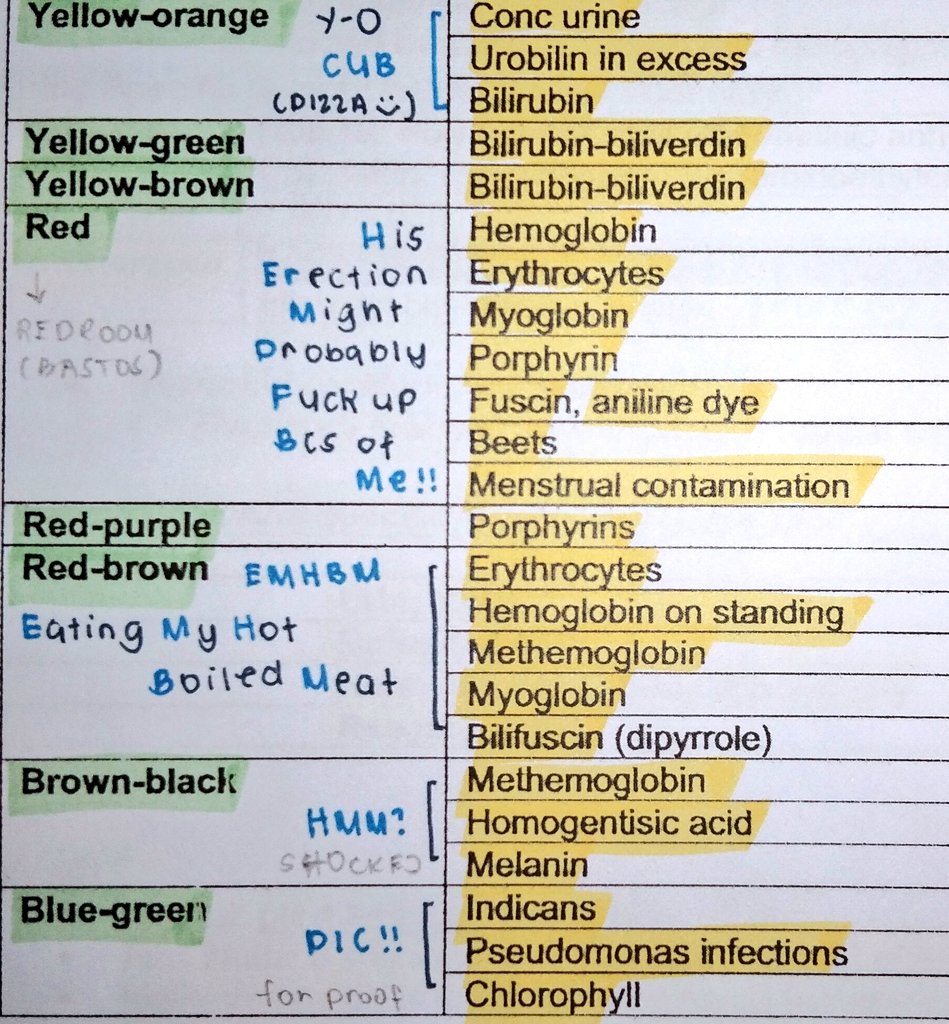 Yellow-orange Y-O Conc urine
CUB Urobilin in excess
(PIZZA) Bilirubin
Yellow-green Bilirubin-biliverdin
Yellow-brown Bilirubin-biliverdin
Red His Hemoglobin
Erection Erythrocytes
Might Myoglobin
REDROOM Probably Porphyrin
(BASTOS) Fuck up Fuscin, aniline dye
Bcs of Beets
Me!! Menstrual contamination
Red-purple Porphyrins
Red-brown EMHBM Erythrocytes
Eating My Hot Hemoglobin on standing
Boiled Meat Methemoglobin
Myoglobin
Bilifuscin (dipyrrole)
Brown-black Methemoglobin
HMM? Homogentisic acid
SHOCKED Melanin
Blue-green Indicans
PIC!! Pseudomonas infections
for proof Chlorophyll